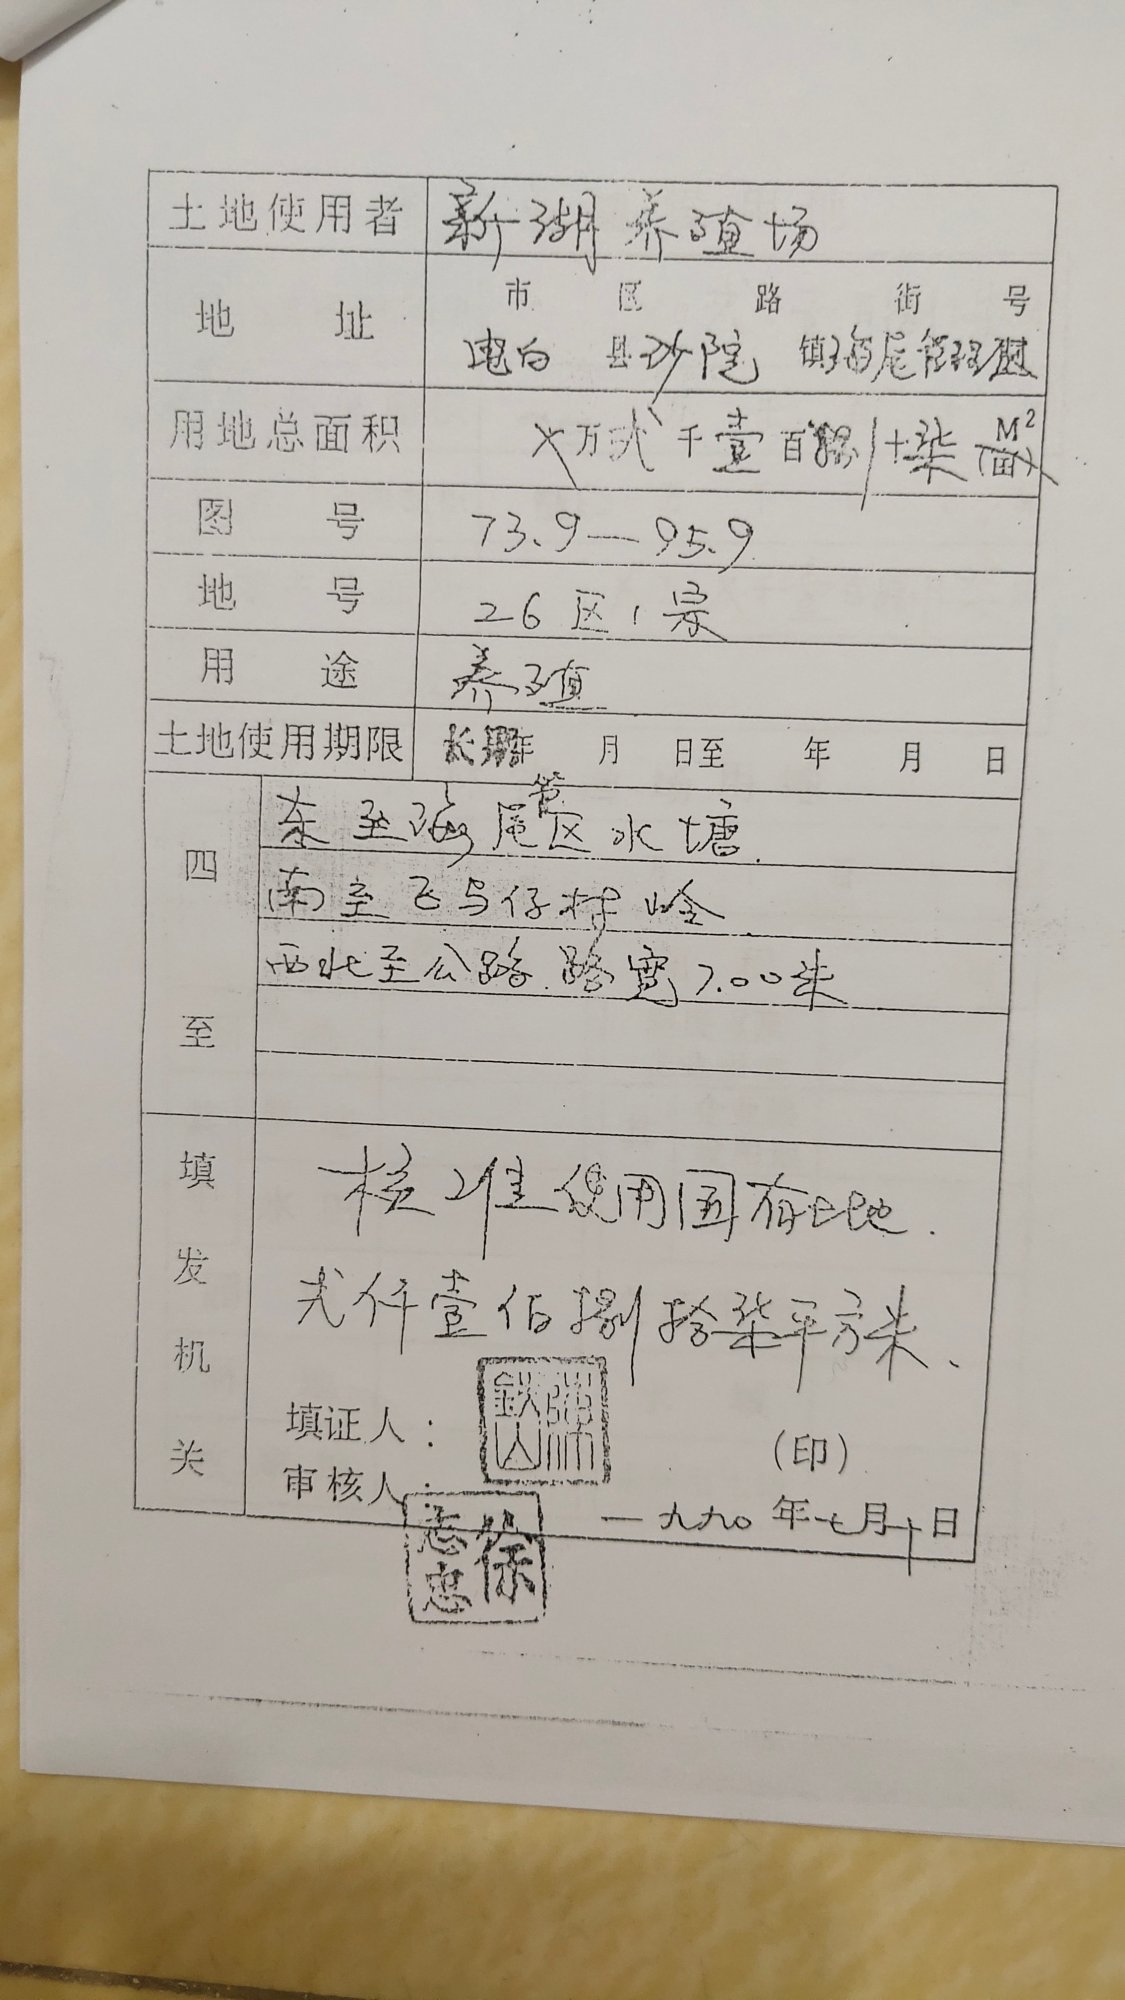 土地使用者 新湖养殖场
地址 市 区 路 街 号
电白 县沙院 镇海尾管理区
用地总面积 ㄨ万弍千壹百捌十柒 M² (亩)
图号 73.9—95.9
地号 26区1宗
用途 养殖
土地使用期限 长期年 月 日至 年 月 日
四至 东至海尾管区水塘.
南至飞马仔村岭
西北至公路.路宽7.00米
填发机关 核准使用国有土地.
弍仟壹佰捌拾柒平方米、
填证人： 铁山
(印)
审核人： 徐志忠
一九九〇年七月十日